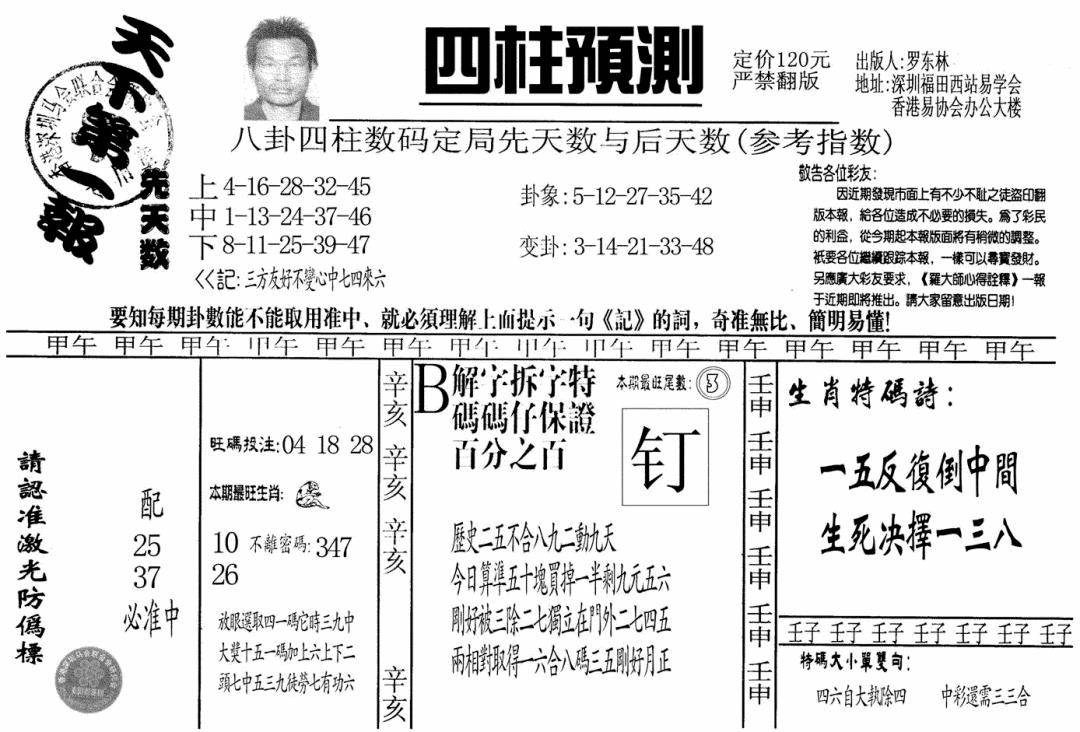 天下第一報
四柱預測
定价120元
严禁翻版
出版人:罗东林
地址:深圳福田西站易学会
香港易协会办公大楼
八卦四柱数码定局先天数与后天数(参考指数)
先天数
上 4-16-28-32-45
中 1-13-24-37-46
下 8-11-25-39-47
<<記:三方友好不變心中七四來六
卦象:5-12-27-35-42
变卦:3-14-21-33-48
敬告各位彩友:
因近期發現市面上有不少不恥之徒盜印翻
版本報,給各位造成不必要的損失。爲了彩民
的利益,從今期起本報版面將有稍微的調整。
衹要各位繼續跟踪本報,一樣可以尋寶發財。
另應廣大彩友要求,《羅大師心得詮釋》一報
于近期即將推出。請大家留意出版日期!
要知每期卦數能不能取用准中、就必須理解上面提示一句《記》的詞,奇准無比、簡明易懂!
甲午 甲午 甲午 甲午 甲午 甲午 甲午 甲午 甲午 甲午 甲午 甲午 甲午 甲午 甲午
請認准激光防僞標
配
25
37
必准中
旺碼投注:04 18 28
本期最旺生肖:
10 不離密碼:347
26
放眼選取四一碼它時三九中
大獎十五一碼加上六上下二
頭七中五三九徒勞七有功六
辛亥
辛亥
辛亥
辛亥
B
解字拆字特
碼碼仔保證
百分之百
本期最旺尾數:3
钉
歷史二五不合八九二動九天
今日算準五十塊買掉一半剩九元五六
剛好被三除二七獨立在門外二七四五
兩相對取得一六合八碼三五剛好月正
壬申
壬申
壬申
壬申
壬申
壬申
生肖特碼詩:
一五反復倒中間
生死决擇一三八
壬子 壬子 壬子 壬子 壬子 壬子 壬子
特碼大小單雙句:
四六自大執除四 中彩還需三三合